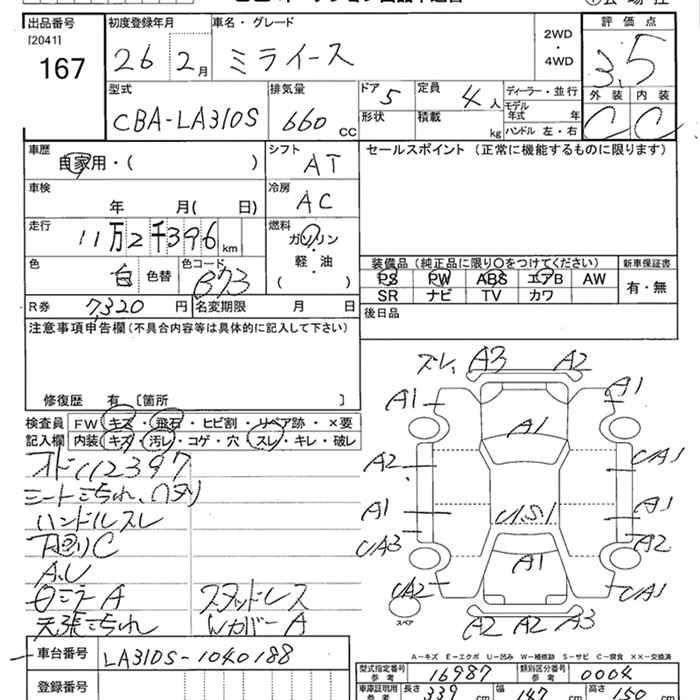 出品番号 初度登録年月 車名・グレード 2WD・4WD 評価点
[2041]
167 26 2月 ミライース 3.5
型式 排気量 ドア 5 定員 4人 ディーラー・並行 外装 内装
CBA-LA310S 660cc 形状 積載 kg モデル年式 年 C C
ハンドル 左・右
車歴 シフト セールスポイント (正常に機能するものに限ります)
自家用・( ) AT
車検 冷房
年 月( 日) AC
走行 燃料
11万2千396km ガソリン・軽・油
色 白 色替 色コード B73 ( )
装備品(純正品に限り○をつけてください) 新車保証書
PS PW ABS エアB AW 有・無
SR ナビ TV カワ
R券 7,320円 名変期限 月 日
後日品
注意事項申告欄(不具合内容等は具体的に記入して下さい)
修復歴 有 [箇所 ]
検査員 FW キズ・飛石・ヒビ割・リペア跡・×要
記入欄 内装 キズ・汚レ・コゲ・穴・スレ・キレ・破レ
オド112397
シートこちれ、ヘタリ
ハンドルスレ
下回りC
A.U
ロミラーA スタッドレス
天張こちれ WカバーA
ズレ A3 A2
A1 A1
A1
A2 UA1
A1 U.S.1 A1
UA3 A2
A1
UA2 UA1
スペア
A2 A2 A3
A-キズ E-エクボ U-凹み W-補修跡 S-サビ C-腐食 ××-交換済
車台番号 LA310S-1040188
登録番号
型式指定番号 参考 16987 類別区分番号 参考 0004
車庫証明用 参考 長さ 339cm 幅 147cm 高さ 150cm